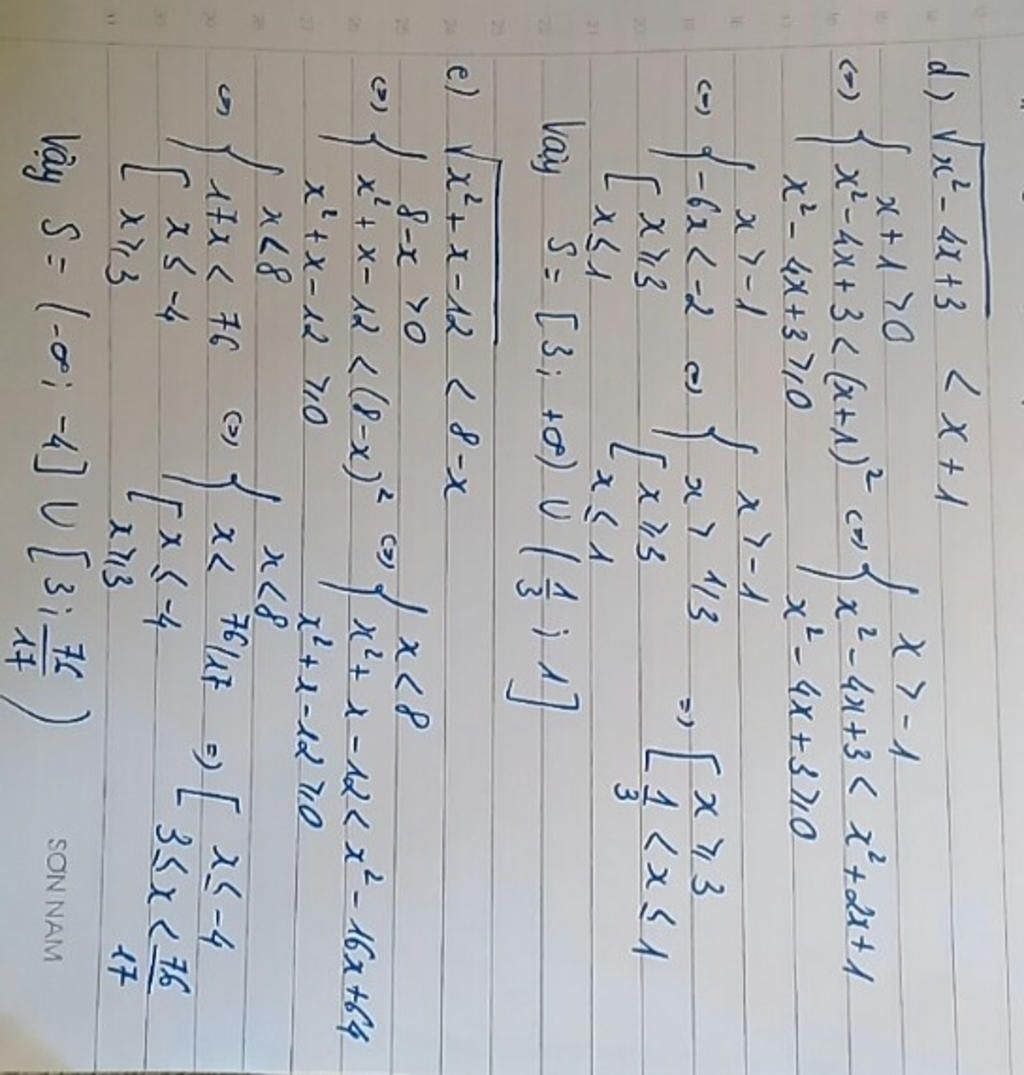 d) √(x² - 4x + 3) < x + 1
⇔ { x + 1 > 0
x² - 4x + 3 < (x + 1)²
x² - 4x + 3 ⩾ 0
⇔ { x > -1
x² - 4x + 3 < x² + 2x + 1
x² - 4x + 3 ⩾ 0
⇔ { x > -1
-6x < -2
[ x ⩾ 3
x ≤ 1
⇔ { x > -1
x > 1/3
[ x ⩾ 3
x ≤ 1
⇒ [ x ⩾ 3
1/3 < x ≤ 1
Vậy S = [3; +∞) ∪ (1/3; 1]
e) √(x² + x - 12) < 8 - x
⇔ { 8 - x > 0
x² + x - 12 < (8 - x)²
x² + x - 12 ⩾ 0
⇔ { x < 8
x² + x - 12 < x² - 16x + 64
x² + x - 12 ⩾ 0
⇔ { x < 8
17x < 76
[ x ≤ -4
x ⩾ 3
⇔ { x < 8
x < 76/17
[ x ≤ -4
x ⩾ 3
⇒ [ x ≤ -4
3 ≤ x < 76/17
Vậy S = (-∞; -4] ∪ [3; 76/17)
SON NAM